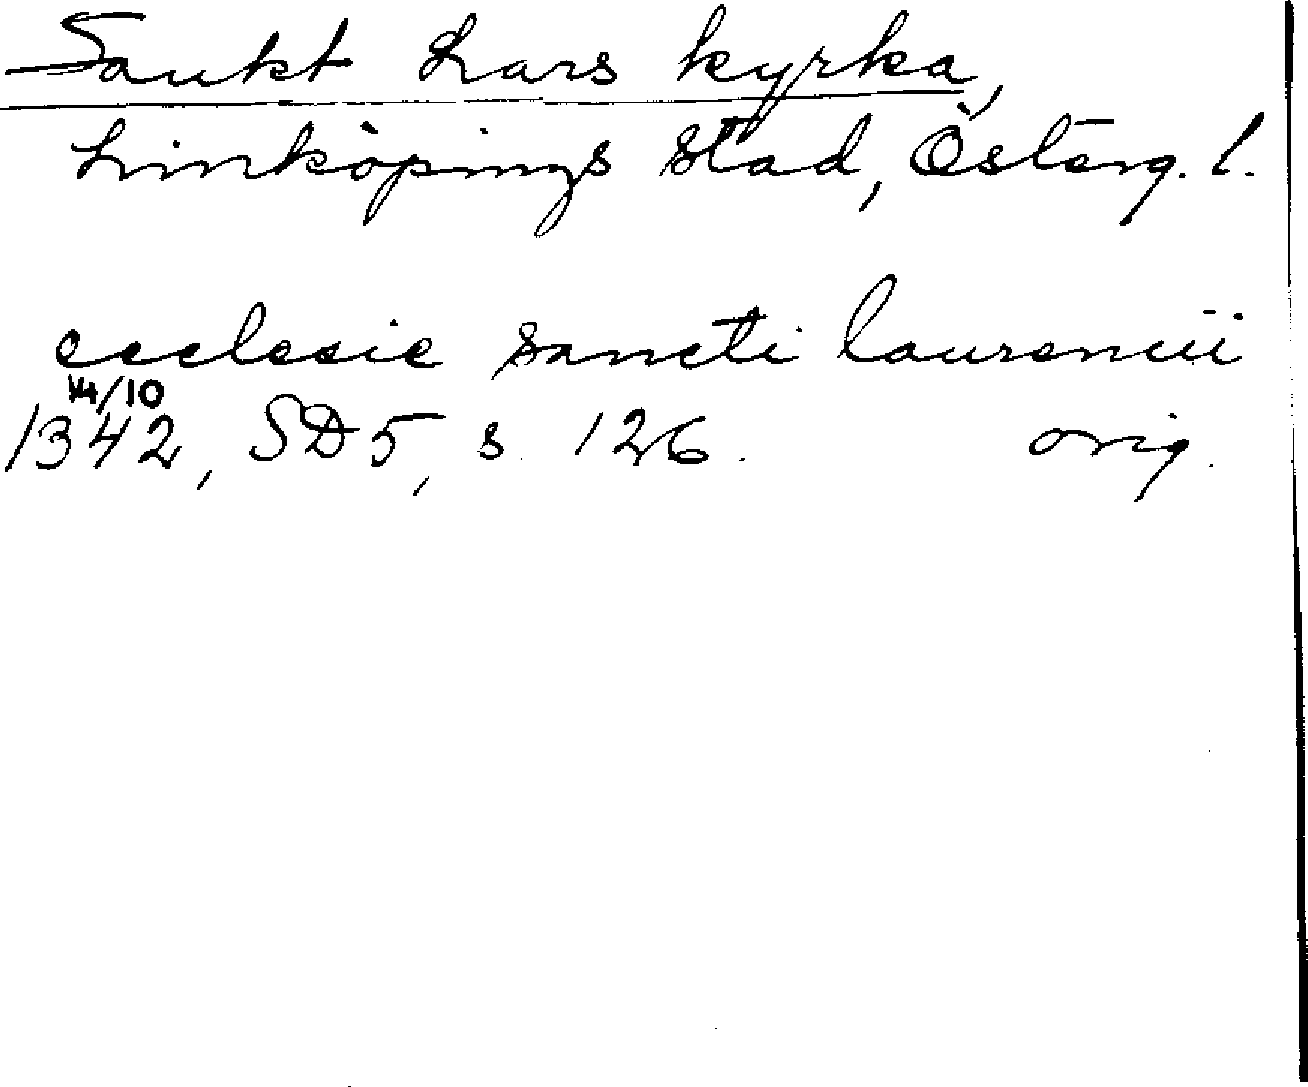 Sankt Lars kyrka,
Linköpings stad, Österg. l.
ecclesie sancti laurencii
14/10
1342, SD5, s. 126. orig.